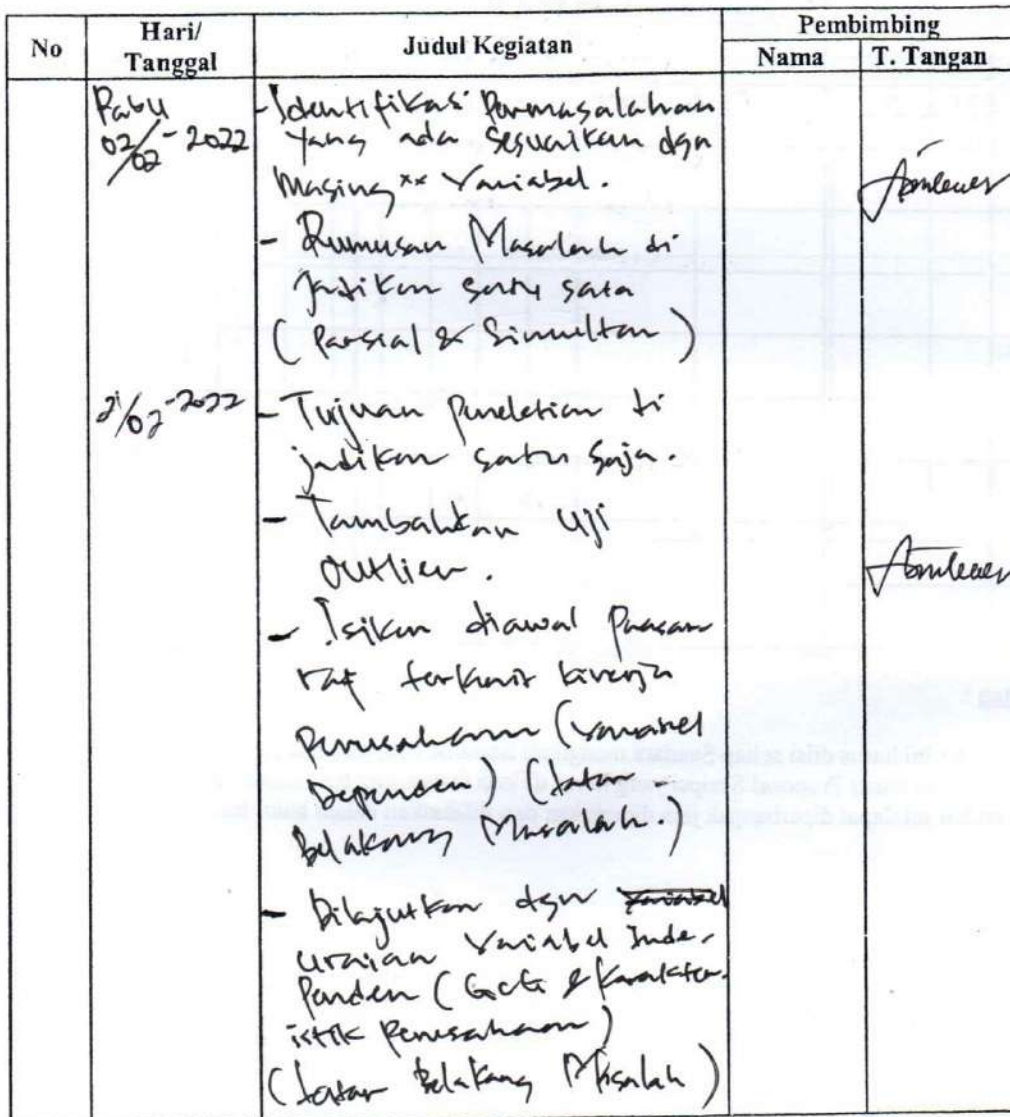 No
Hari/
Tanggal
Judul Kegiatan
Pembimbing
Nama
T. Tangan
Rabu
02/02-2022
- Identifikasi Permasalahan
yang ada sesuaikan dgn
masing ** Variabel.
- Rumusan Masalah di
jadikan satu saja
(Parsial & Simultan)
21/02-2022
- Tujuan penelitian di
jadikan satu saja.
- Tambahkan Uji
Outlier.
- Isikan diawal
terkait kinerja
Perusahaan (Variabel
Dependen) (Latar
Belakang Masalah.)
- Dilajutkan dgn Variabel
uraian Variabel Inde-
penden (GCG & Karakter-
istik Perusahaan)
(Latar Belakang Masalah)